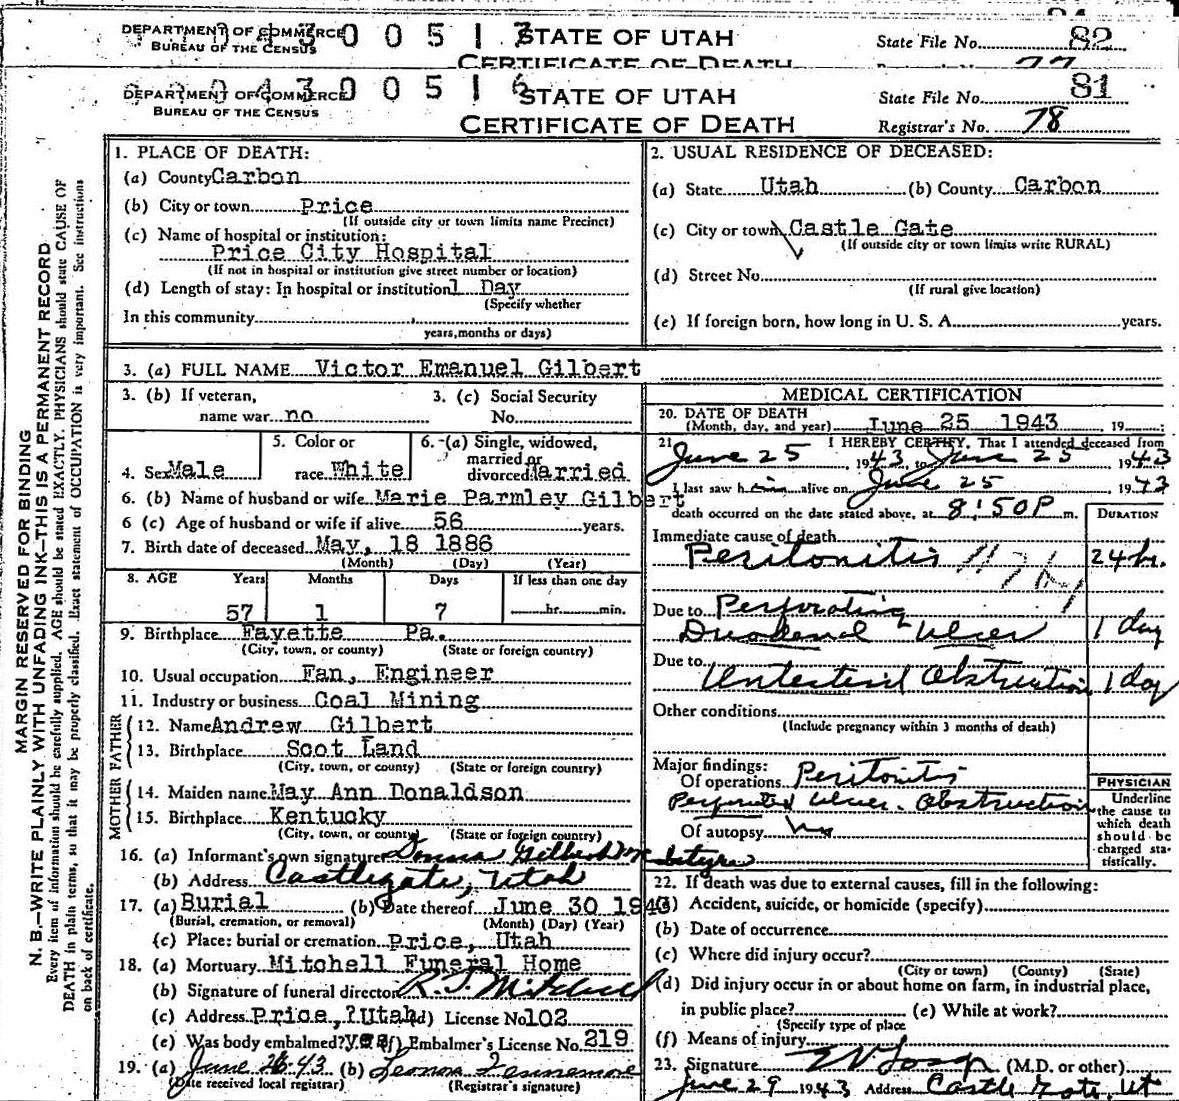 DEPARTMENT OF COMMERCE STATE OF UTAH State File No. 82
BUREAU OF THE CENSUS CERTIFICATE OF DEATH 77
DEPARTMENT OF COMMERCE 0 4 3 0 0 5 1 6 STATE OF UTAH State File No. 81
BUREAU OF THE CENSUS CERTIFICATE OF DEATH Registrar's No. 78
MARGIN RESERVED FOR BINDING
N. B.—WRITE PLAINLY WITH UNFADING INK—THIS IS A PERMANENT RECORD
Every item of information should be carefully supplied. AGE should be stated EXACTLY. PHYSICIANS should state CAUSE OF
DEATH in plain terms, so that it may be properly classified. Exact statement of OCCUPATION is very important. See instructions
on back of certificate.
1. PLACE OF DEATH:
(a) County Carbon
(b) City or town Price
(If outside city or town limits name Precinct)
(c) Name of hospital or institution:
Price City Hospital
(If not in hospital or institution give street number or location)
(d) Length of stay: In hospital or institution 1 Day
(Specify whether
In this community
years, months or days)
2. USUAL RESIDENCE OF DECEASED:
(a) State Utah (b) County Carbon
(c) City or town Castle Gate
(If outside city or town limits write RURAL)
(d) Street No.
(If rural give location)
(e) If foreign born, how long in U. S. A. years.
3. (a) FULL NAME Victor Emanuel Gilbert
3. (b) If veteran, 3. (c) Social Security
name war no No.
4. Sex Male 5. Color or race White 6. (a) Single, widowed, married or divorced Married
6. (b) Name of husband or wife Marie Parmley Gilbert
6 (c) Age of husband or wife if alive 56 years.
7. Birth date of deceased May, 18 1886
(Month) (Day) (Year)
8. AGE Years Months Days If less than one day
57 1 7 hr. min.
9. Birthplace Fayette Pa.
(City, town, or county) (State or foreign country)
10. Usual occupation Fan, Engineer
11. Industry or business Coal Mining
FATHER
12. Name Andrew Gilbert
13. Birthplace Scot Land
(City, town, or county) (State or foreign country)
MOTHER
14. Maiden name May Ann Donaldson
15. Birthplace Kentucky
(City, town, or county) (State or foreign country)
16. (a) Informant's own signature Donna Gilbert
(b) Address Castlegate, Utah
17. (a) Burial (b) Date thereof June 30 1943
(Burial, cremation, or removal) (Month) (Day) (Year)
(c) Place: burial or cremation Price, Utah
18. (a) Mortuary Mitchell Funeral Home
(b) Signature of funeral director R.J. Mitchell
(c) Address Price, Utah (d) License No. 102
(e) Was body embalmed? yes (f) Embalmer's License No. 219
19. (a) June 26-43 (b) Leonora Fennemore
(Date received local registrar) (Registrar's signature)
MEDICAL CERTIFICATION
20. DATE OF DEATH
(Month, day, and year) June 25 1943 19
21. I HEREBY CERTIFY, That I attended deceased from
June 25 1943, to June 25 1943
I last saw him alive on June 25 1943
death occurred on the date stated above, at 8:50P m. DURATION
Immediate cause of death
Peritonitis 24 hr.
Due to Perforating
Duodenal Ulcer 1 day
Due to
Intestinal Obstruction 1 day
Other conditions
(Include pregnancy within 3 months of death)
Major findings:
Of operations Peritonitis
Perforated Ulcer. Obstruction
Of autopsy no
PHYSICIAN
Underline
the cause to
which death
should be
charged sta-
tistically.
22. If death was due to external causes, fill in the following:
(a) Accident, suicide, or homicide (specify)
(b) Date of occurrence
(c) Where did injury occur?
(City or town) (County) (State)
(d) Did injury occur in or about home on farm, in industrial place,
in public place? (e) While at work?
(Specify type of place
(f) Means of injury
23. Signature (M.D. or other)
June 29 1943 Address Castle Gate, Ut